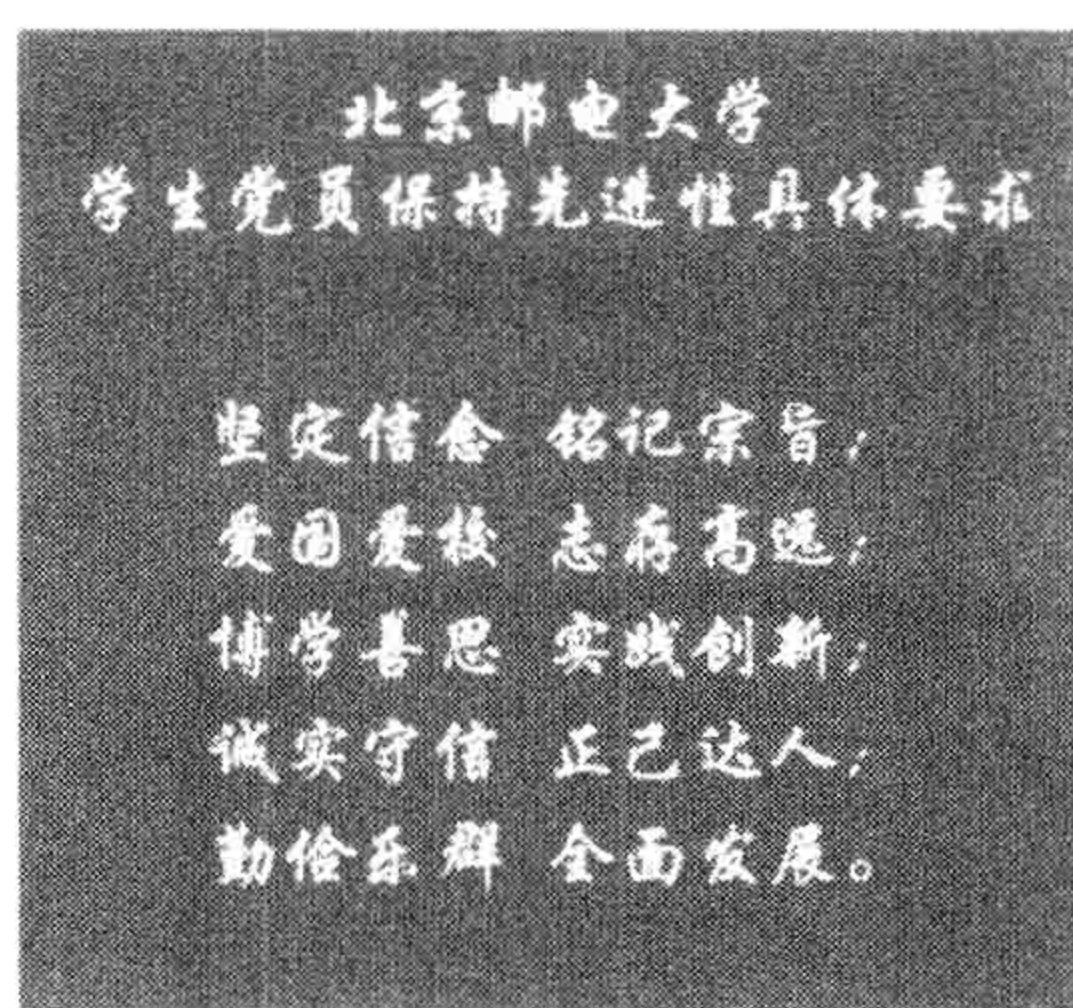 北京邮电大学
学生党员保持先进性具体要求
坚定信念 铭记宗旨;
爱国爱校 志存高远;
博学善思 实践创新;
诚实守信 正己达人;
勤俭乐群 全面发展。